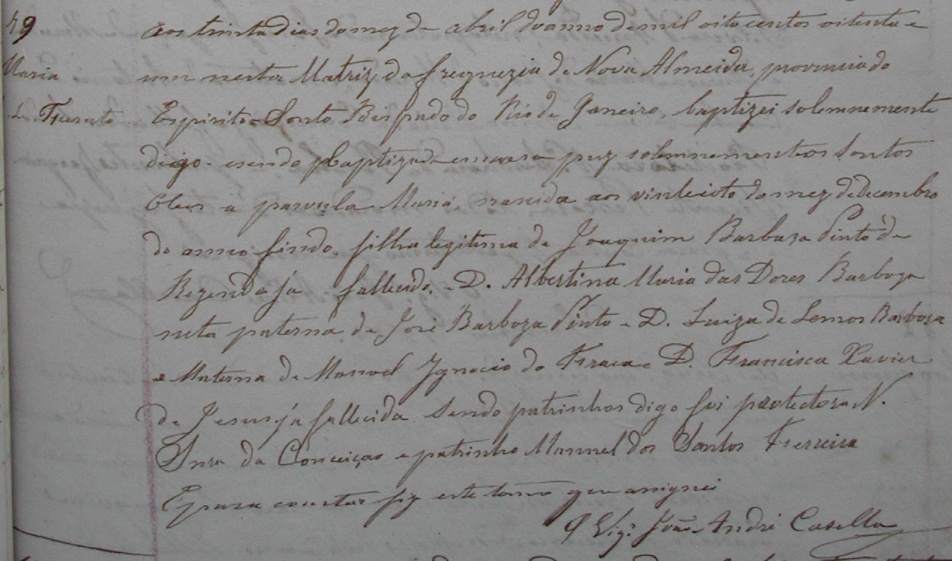 49
Maria
aos trinta dias do mez de abril do anno de mil oito centos oitenta e
um nesta Matriz da freguezia de Nova Almeida, provincia do
Espirito Santo Bispado do Rio de Janeiro, baptizei solemnemente
digo sendo baptizada em casa puz solemnemente os Santos
Oleos a parvula Maria, nascida aos vinte oito do mez de dezembro
do anno findo, filha legitima de Joaquim Barboza Pinto de
Rezende já fallecido, e D. Albertina Maria das Dores Barboza
neta paterna de José Barboza Pinto e D. Luiza de Lemos Barboza
e Materna de Manoel Ignacio do e D. Francisca Xavier
de Jesus já fallecida. Sendo patrinhos digo foi protectora N.
Snra da Conceiçao e patrinho Manuel dos Santos Ferreira
E para constar fiz este termo que assignei
O Vigr.º João André Casella